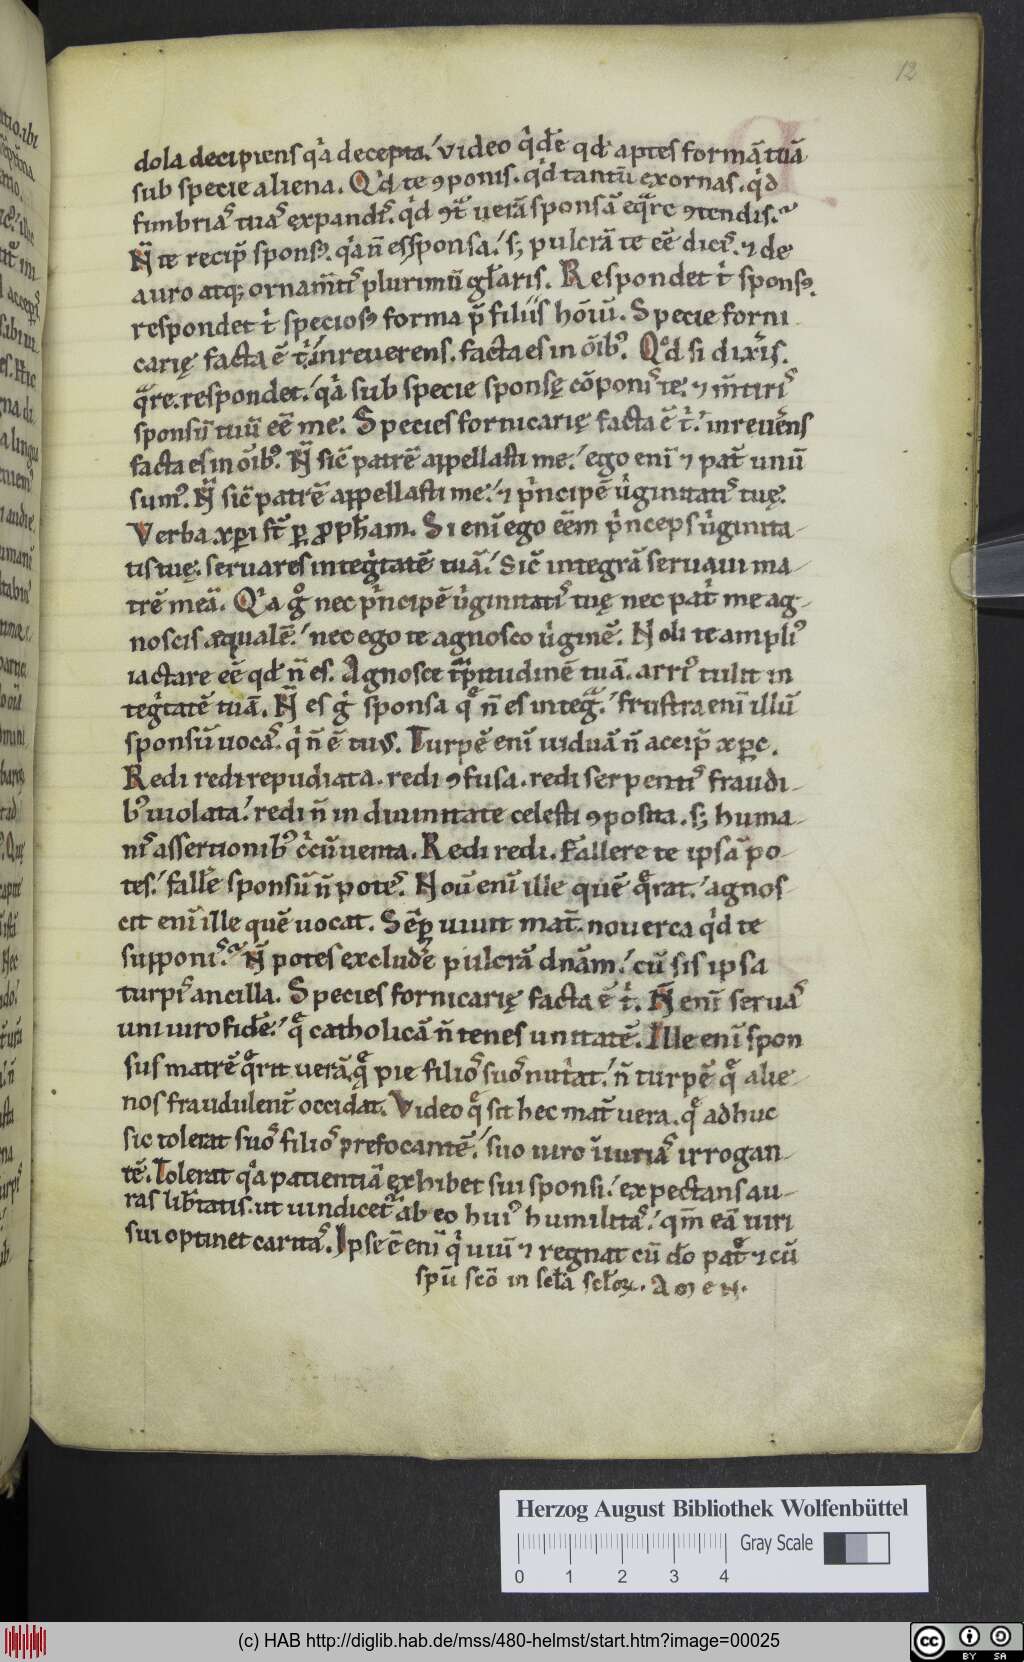 12
dola decipiens qͥa decepta. video qͥdē qd aptes formā tuā
sub specie aliena. Qͥd te ꝯponis. qͥd tantū exornas. qͥd
fimbrias tuas expandis. qͥd ꝯtͣ uerā sponsā eq̄re ꝯtendis.
N̄ te recip̄ sponsꝰ. qͥa n̄ es sponsa. sꝫ pulcrā te eē dicis. ⁊ de
auro atqꝫ ornam̄tis plurimū gl̄aris. Respondet tͥ sponsꝰ.
respondet tͥ speciosꝰ forma p̄ filiis hōiū. Specie forni
carię facta ē tͥ. inreuerens. facta es in oībꝰ. Qd si dixͥis.
qͣre. respondet. qͥa sub specie sponsę cōponis te. ⁊ m̄tiris
sponsū tuū eē me. Species fornicarię facta ē tͥ. inreuēns
facta es in oībꝰ. N̄ sic patrē appellasti me. ego enī ⁊ pat̄ unū
sumꝰ. N̄ sic patrē appellasti me. ⁊ pͥncipē uͥginitatis tuę.
Verba xp̄i st̄ ꝑ ꝓph̄am. Si enī ego eēm pͥnceps uͥginita-
tis tuę. seruares integͥtatē tuā. Sic integrā seruaui ma-
trē meā. Qͥa gͦ nec pͥncipē uͥginitatis tuę nec pat̄ me ag-
noscis ęqualē. nec ego te agnosco uͥginē. Noli te ampliꝰ
iactare eē qd n̄ es. Agnosce tͥpitudinē tuā. arriꝰ tulit in
tegͥtatē tuā. N̄ es gͥ sponsa qͣ n̄ es integͣ. frustra enī illū
sponsū uocas. qͥ n̄ ē tuus. Turpē enī uiduā n̄ accip̄ xp̄c.
Redi redi repudiata. redi ꝯfusa. redi serpentis fraudi-
bꝰ uiolata. redi n̄ in diuinitate celesti ꝯposita. sꝫ huma-
nis assertionibꝰ cͥcūuenta. Redi redi. Fallere te ipsā po-
tes. fallē sponsū n̄ potes. Nou enī ille quē qͣrat. agnos-
cit enī ille quē uocat. Sēꝑ uiuit mat̄. nouerca qͥd te
supponis. N̄ potes excludē pulcrā dn̄am. cū sis ipsa
turpis ancilla. Species fornicarię facta ē tͥ. N̄ enī seruas
uni uiro fidē. qͣ catholicā n̄ tenes unitatē. Ille enī spon
sus matrē qͣrit uerā. qͣ pie filios suos nutͥat. n̄ turpē qͣ alie-
nos fraudulent̄ occidat. Video qͣ sit hec mat̄ uera. qͣ adhuc
sic tolerat suos filios prefocantē. suo uiro iniurias irrogan-
tē. Tolerat qͥa patientiā exhibet sui sponsi. expectans au-
ras lib̄tatis. ut uindicet̄ ab eo huiꝰ humilitas. qm̄ eā uiri
sui optinet caritas. Ipse ē enī qͥ uiuū ⁊ regnat cū dō pat̄ ⁊ cū
spū scō in scl̄a scl̄oꝝ. Amen.
Herzog August Bibliothek Wolfenbüttel
Gray Scale
0 1 2 3 4
(c) HAB http://diglib.hab.de/mss/480-helmst/start.htm?image=00025
cc BY SA